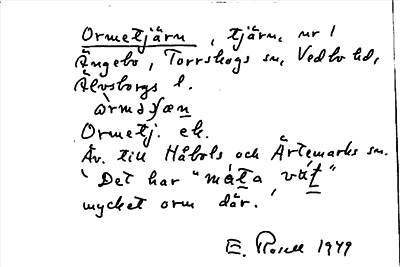 Ormetjärn, tjärn, nr 1
Ängebo, Torrskogs sn, Vedbo hd,
Älvsborgs l.
òrməʃæn
Ormetj. ek.
Äv. till Håbols och Ärtemarks sn.
"Det har "måta vät"
mycket orm där.
E. Rosell 1949